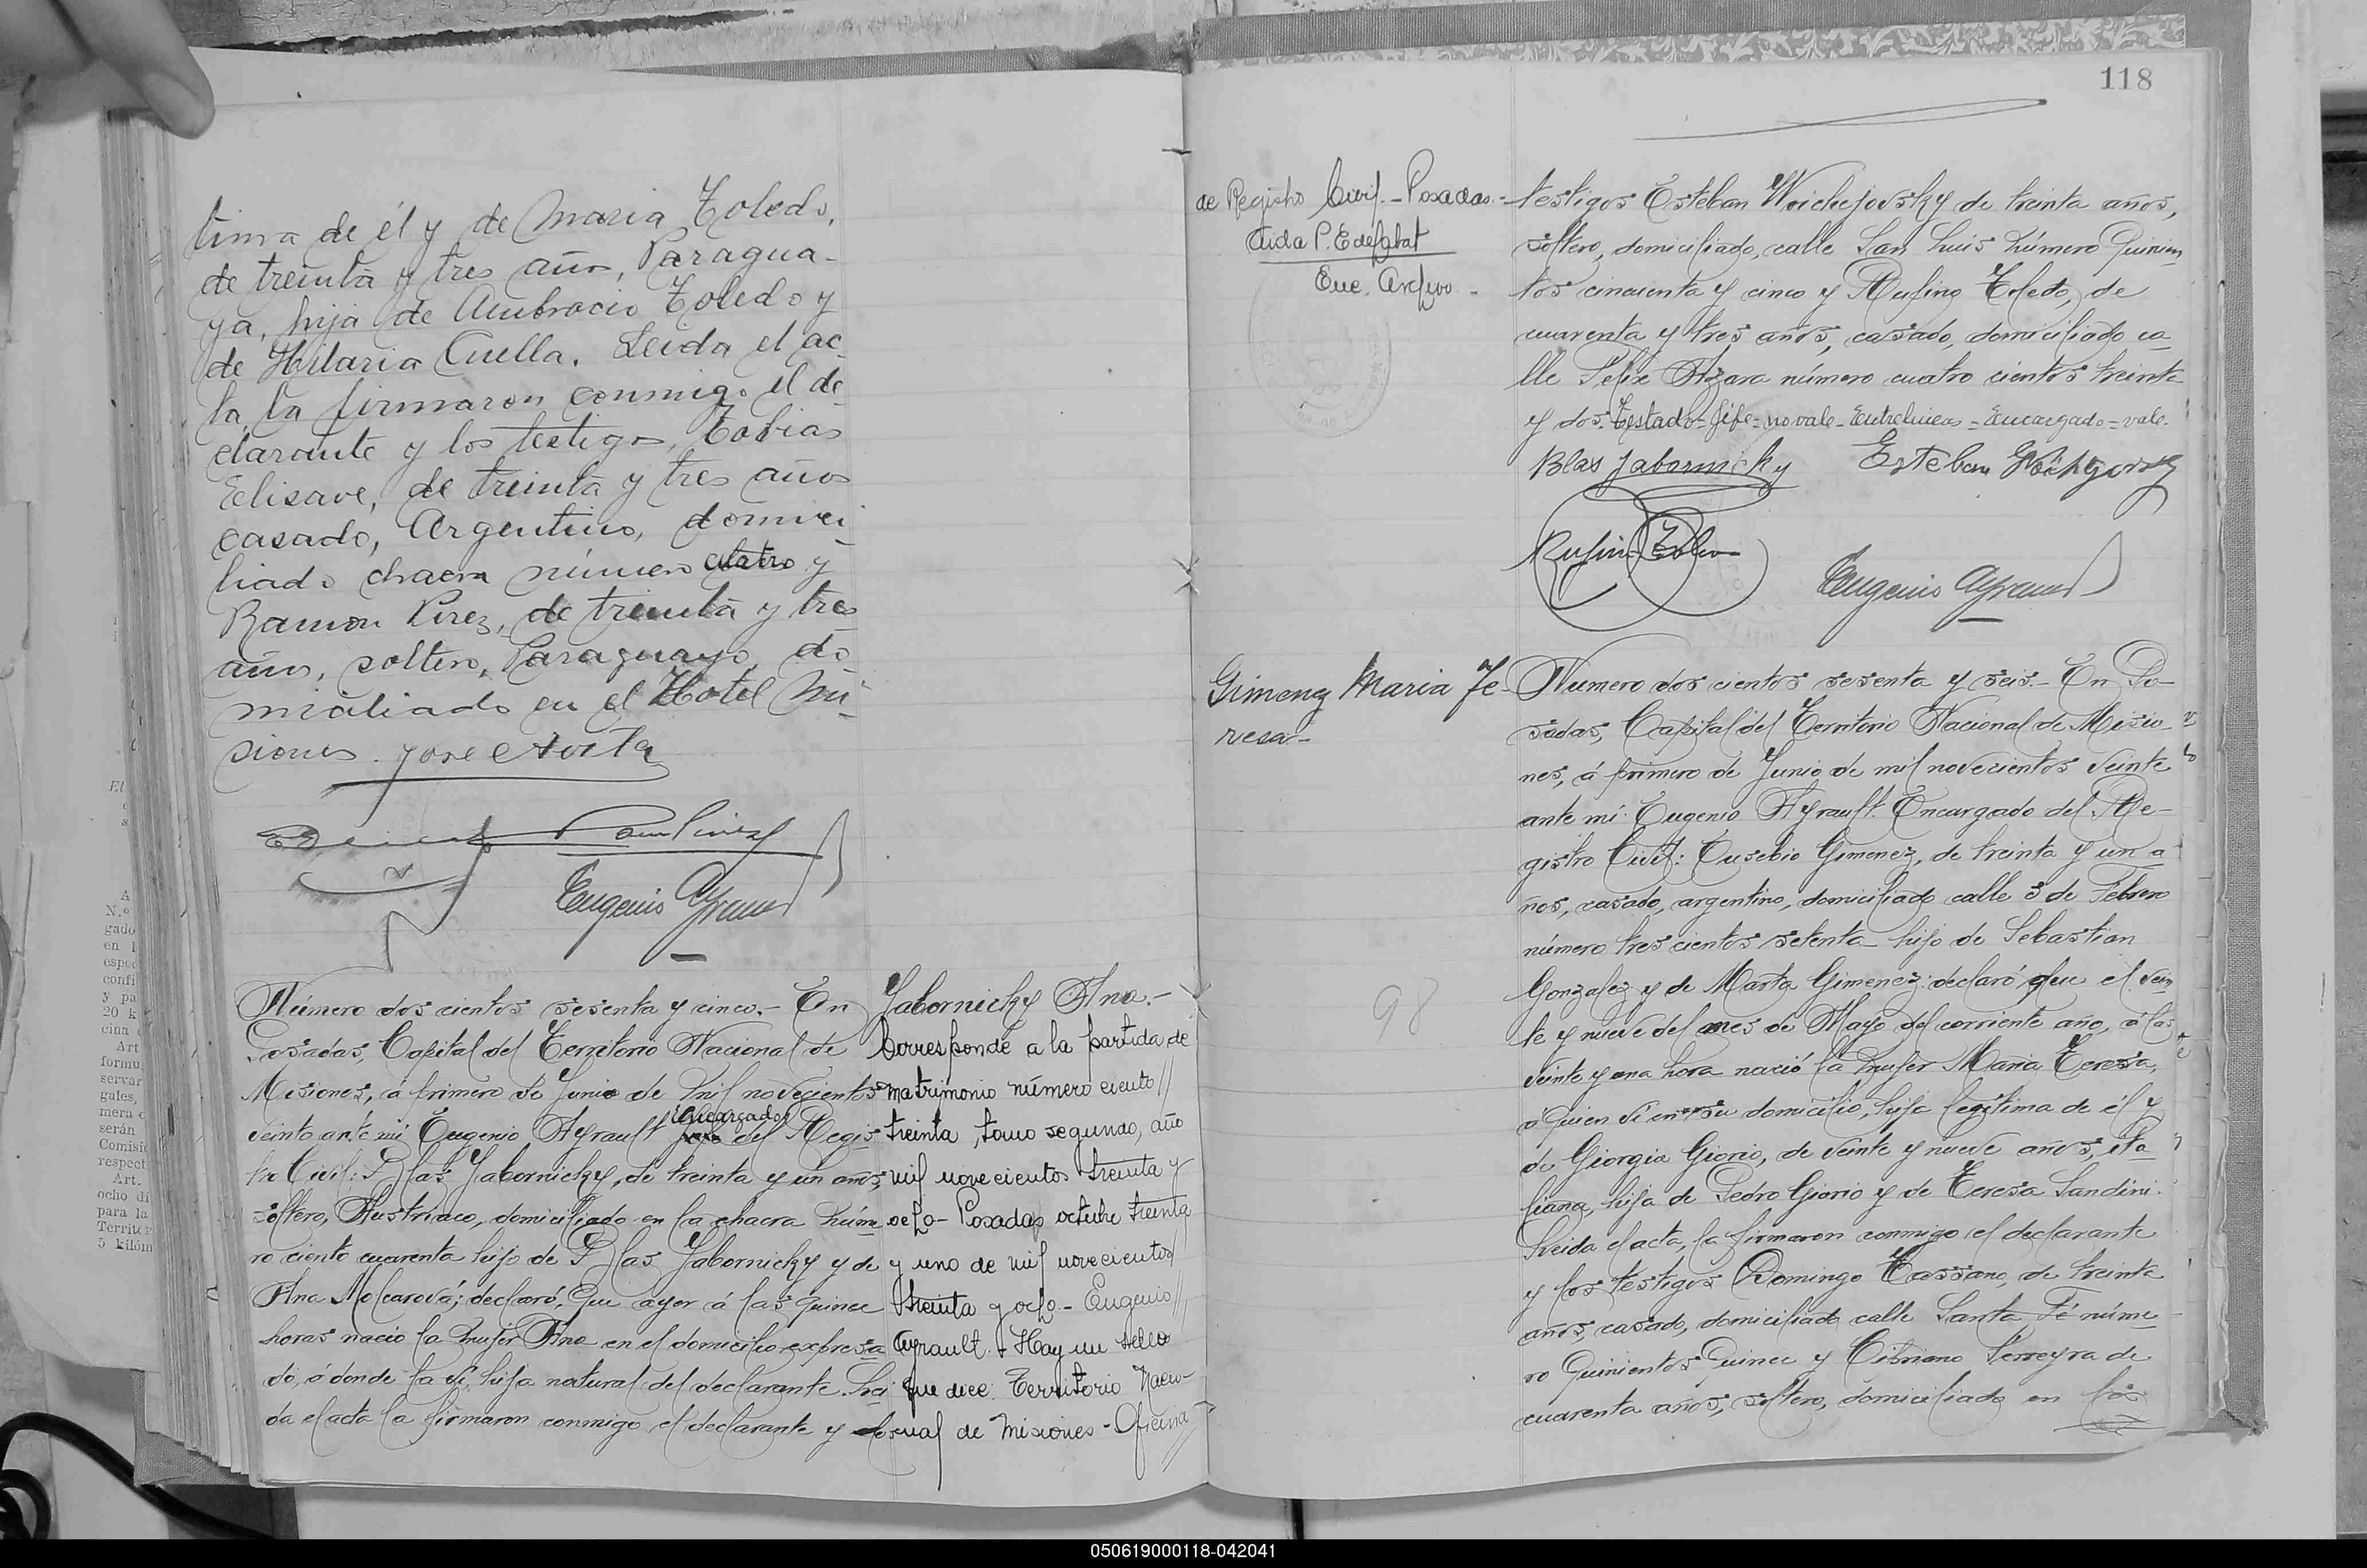 tima de él y de Maria Toledo,
de treinta y tres años, Paragua-
ya, hija de Ambrocio Toledo y
de Hilaria Cuella. Leida el ac-
ta, la firmaron conmigo el de
clarante y los testigos, Tobias
Elisave, de treinta y tres años
casado, Argentino, domici
liado chacra número cuatro y
Ramon Pirez, de treinta y tres
años, soltero, Paraguayo, do-
miciliado en el Hotel Mi-
siones. José Acosta
Eugenio Ayrault
Número dos cientos sesenta y cinco.- En
Posadas, Capital del Territorio Nacional de
Misiones, á primero de Junio de mil novecientos
Encargado
veinte ante mi Eugenio Ayrault Jefe del Regis-
tro Civil: Blas Jabornicky, de treinta y un años,
soltero, Austríaco, domiciliado en la chacra núme
ro ciento cuarenta hijo de Blas Jabornicky y de
Ana Molcarová; declaró: Que ayer á las quince
horas nació la mujer Ana en el domicilio expresa
do, ó donde la ví, hija natural del declarante. Lei
da el acta la firmaron conmigo el declarante y los
Jabornicky Ana.-
Corresponde a la partida de
matrimonio número ciento //
treinta, tomo segundo, año
mil novecientos treinta y
ocho - Posadas octubre treinta
y uno de mil novecientos //
treinta y ocho - Eugenio //
Ayrault. - Hay un sello
que dice: Territorio Nacio-
nal de Misiones - Oficina //
118
de Registro Civil. - Posadas.-
Aida P. E de Golat
Enc. Archivo -
testigos Esteban Woichejovsky de treinta años,
soltero, domiciliado, calle San Luis número Quinien
tos cincuenta y cinco y Rufino Toledo, de
cuarenta y tres años, casado, domiciliado ca
lle Felix Azara número cuatro cientos treinta
y dos. Testado = Jefe = no vale - Entrelineas = Encargado = vale.
Blas Jabornicky
Rufino Toledo
Eugenio Ayrault
Gimenez Maria Te-
resa-
Número dos cientos sesenta y seis.- En Po-
sadas, Capital del Territorio Nacional de Misio-
nes, á primero de Junio de mil novecientos veinte
ante mi: Eugenio Ayrault Encargado del Re-
gistro Civil: Eusebio Gimenez, de treinta y un a
ños, casado, argentino, domiciliado calle 3 de Febrero
número tres cientos setenta hijo de Sebastian
Gonzalez y de Marta Gimenez: declaró que el vein
te y nueve del mes de Mayo del corriente año, á las
veinte y una hora nació la mujer Maria Teresa,
á quien ví en su domicilio, hija legítima de él y
de Giorgia Giorio, de veinte y nueve años, ita
liana, hija de Pedro Giorio y de Teresa Sandini.
Leida el acta, la firmaron conmigo el declarante
y los testigos Domingo Cassano, de treinta
años, casado, domiciliado calle Santa Fé núme
ro Quinientos Quince y Cibriano Ferreyra de
cuarenta años, soltero, domiciliado en los
98
050619000118-042041